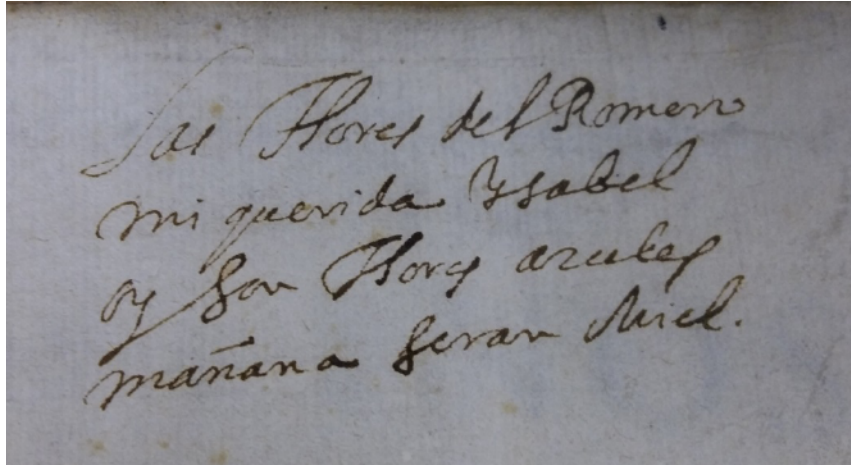 Las Flores del Romero
mi querida Ysabel
oy son Flores azules
mañana seran Miel.